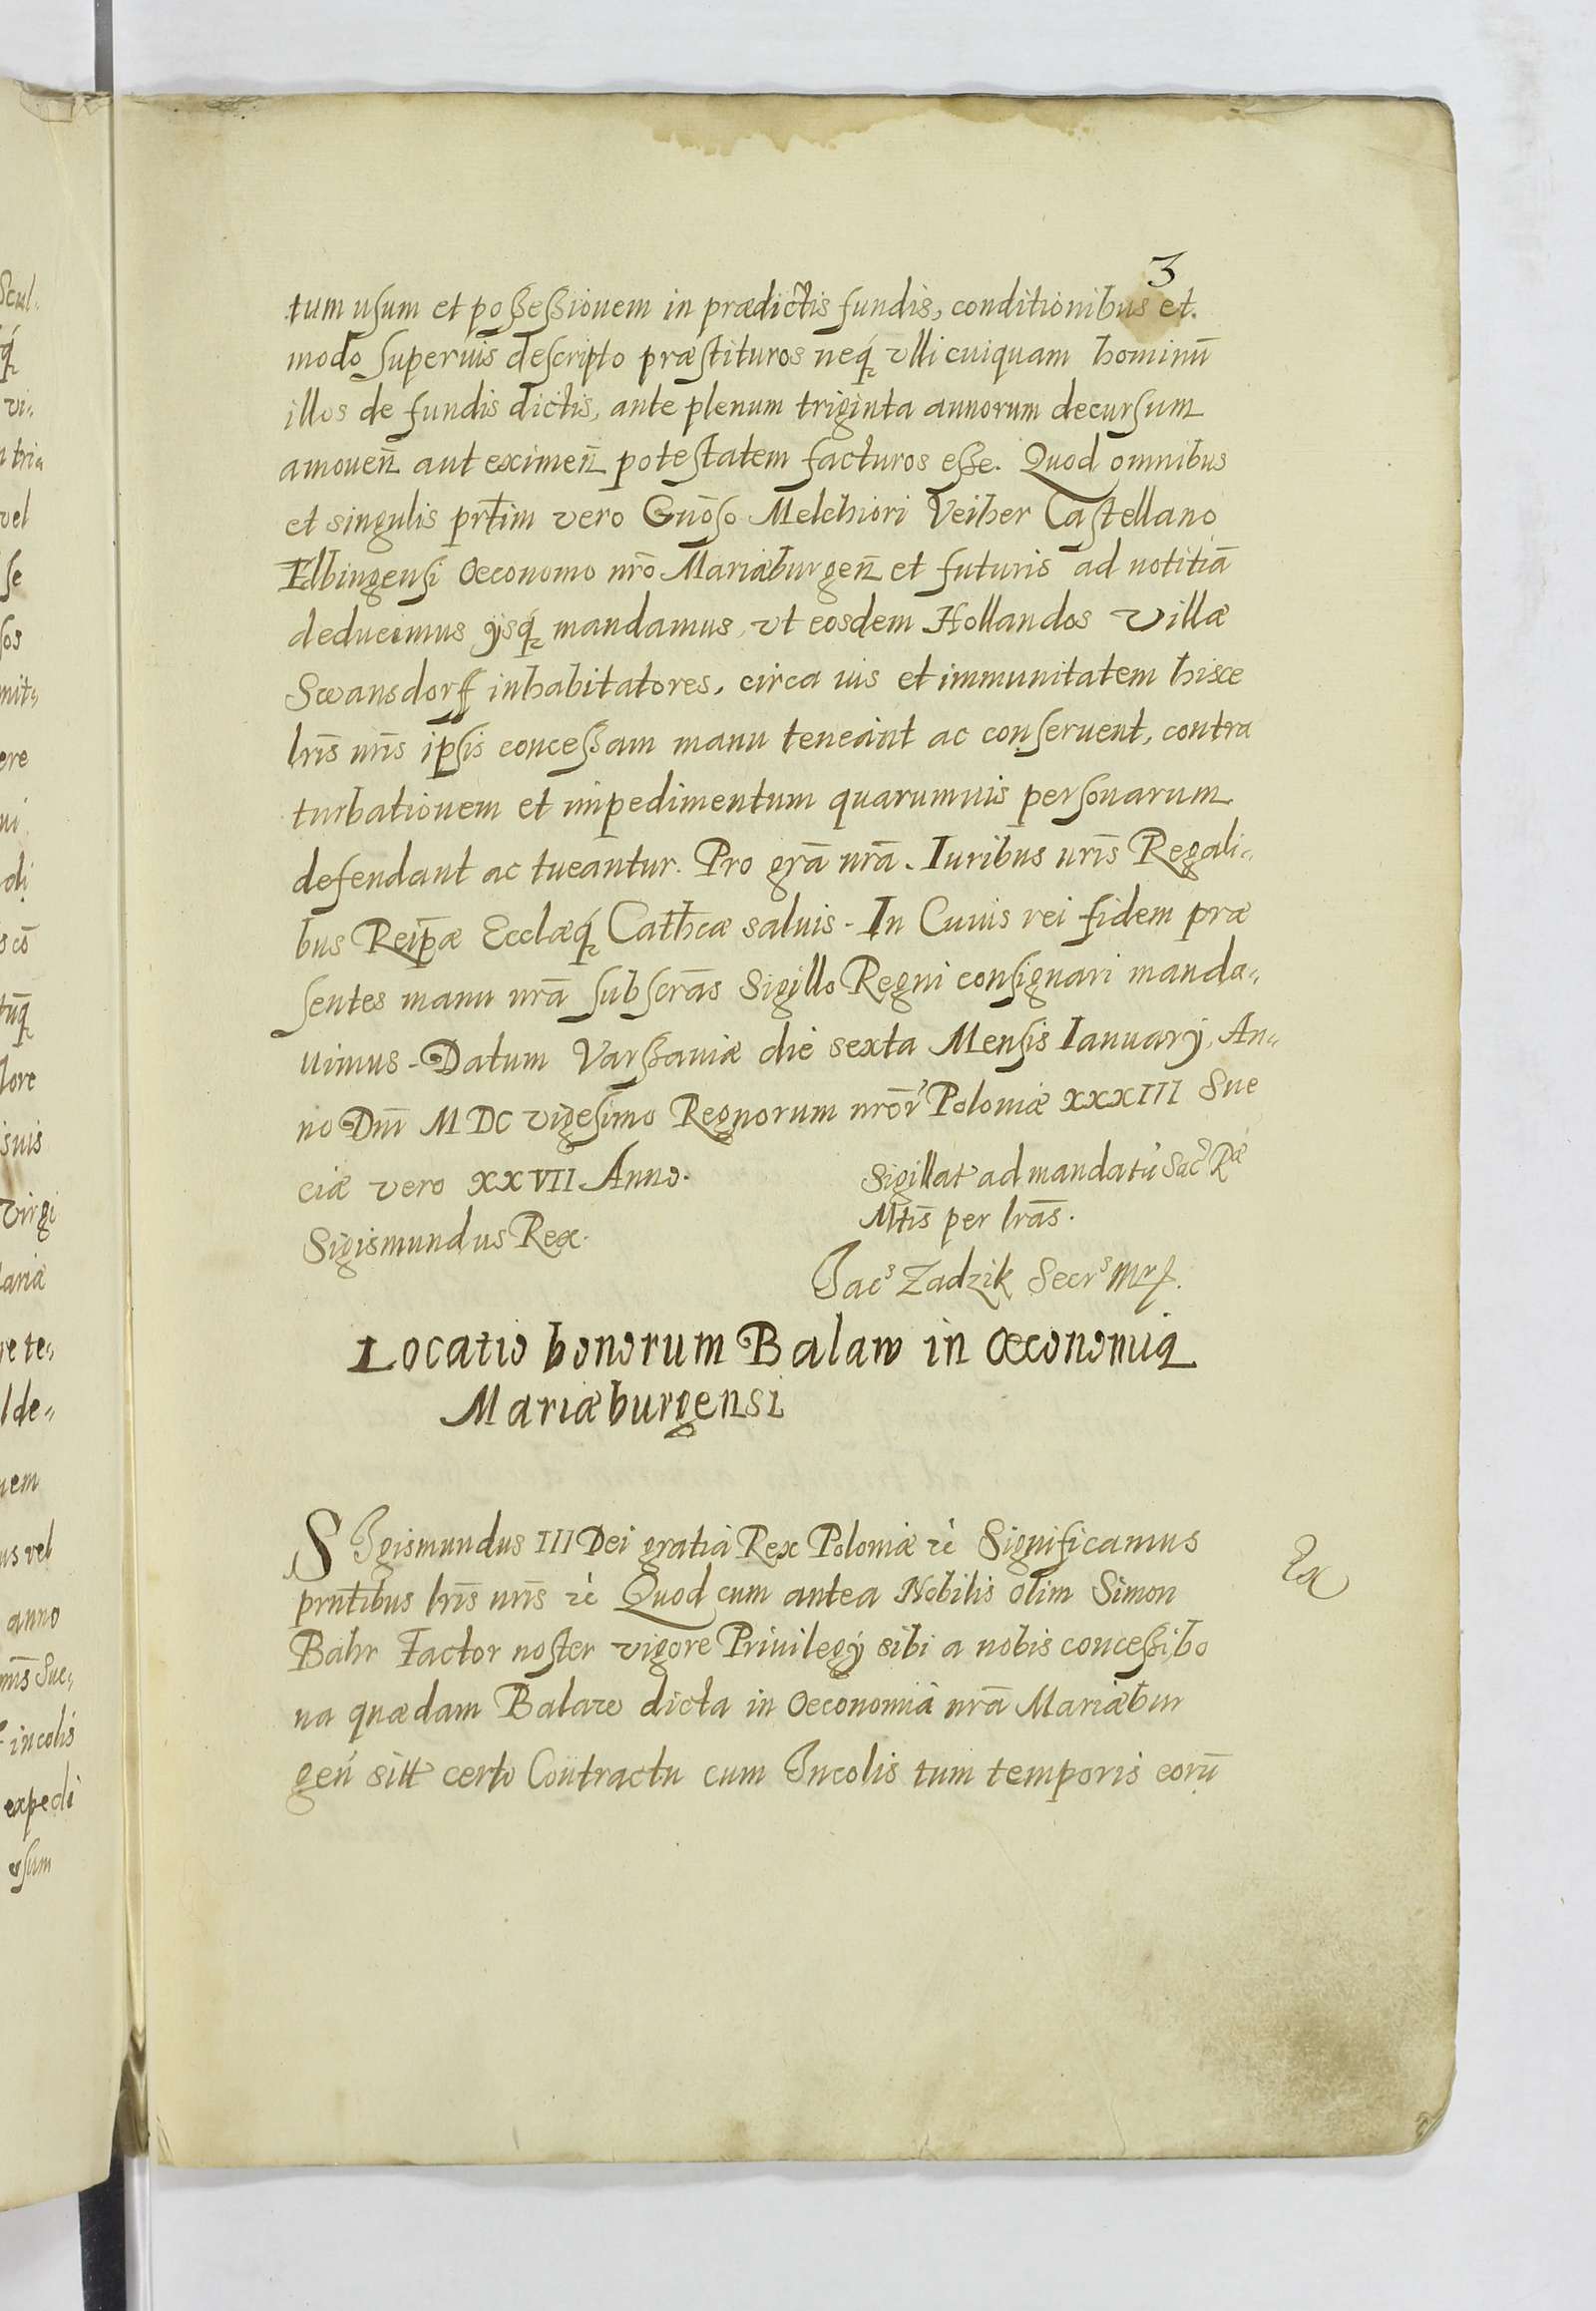 3
tum usum et poßeßionem in prædictis fundis, conditionibus et
modo superius descripto præstituros neq́ꝫ vlli cuiquam hominū
illos de fundis dictis, ante plenum triginta annorum decursum
amouen̄ aut eximen̄ potestatem facturos eße. Quod omnibus
et singulis prt̄im vero Gnōso Melchiori Veiher Castellano
Elbingensi Oeconomo nrō Mariæburgen̄ et futuris ad notitiā
deducimus ysq́ꝫ mandamus, vt eosdem Hollandos Villæ
Swansdorff inhabitatores, circa ius et immunitatem hisce
lrīs nrīs ipsis conceßam manu teneant ac conseruent, contra
turbationem et impedimentum quarumuis personarum
defendant ac tueantur. Pro grā nrā. Iuribus nrīs Regali-
bus Reip̄æ Ecclæq́ꝫ Cathcæ saluis - In Cuius rei fidem præ
sentes manu nrā subscrās Sigillo Regni consignari manda-
uimus - Datum Varßauiæ die sexta Mensis Ianuarÿ, An-
no Dnī MDC vigesimo Regnorum nrōr̄ Poloniæ XXXIII Sue
ciæ vero XXVII Anno.
Sigillat ad mandatū Sacͬ Rͣͤ
Mtīs per lrās.
Sigismundus Rex.
Jacˢ Zadzik Secrˢ Mp.
Locatio bonorum Balaw in Oeconomia
Mariæburgensi
SJgismundus III Dei gratia Rex Poloniæ rc̀ Significamus
prntībus lrīs nrīs rc̀ Quod cum antea Nobilis olim Simon
Bahr Factor noster vigore Priuilegÿ sibi a nobis conceßi, bo
na quædam Balaw dicta in Oeconomia nrā Mariæbur
gen̄ sitt certo Contractu cum Jncolis tum temporis eorū